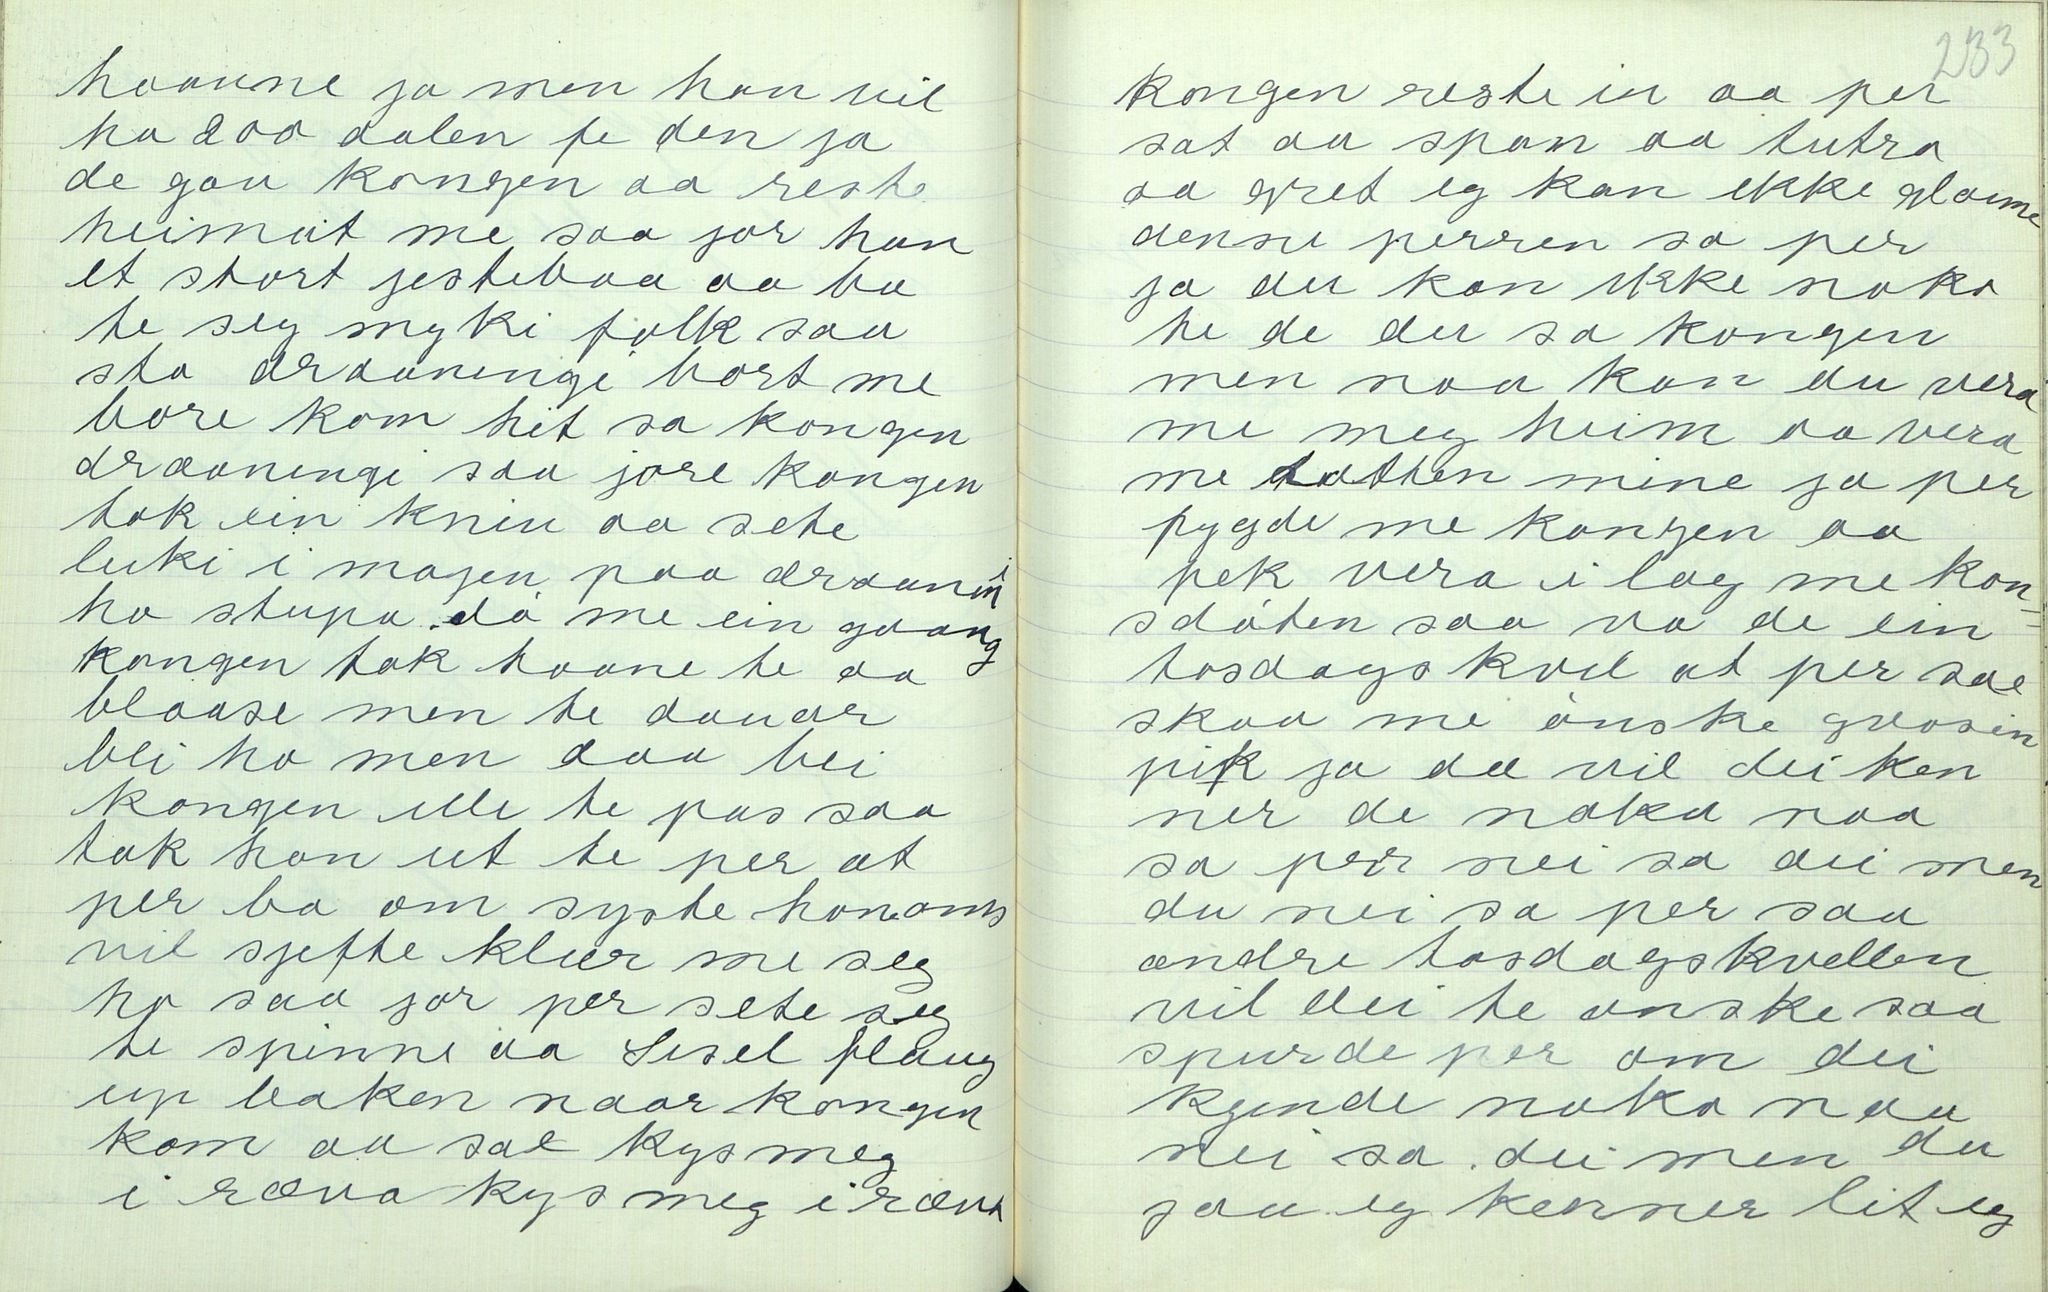 haanne ja men han vil
ha 200 dalen fe den ja
de gav kongen aa reste
heimat me saa jor han
et stort jestebaa aa ba
te seg myki folk saa
sto draaningi bort me
bore kom hit sa kongen
draaningi saa jore kongen
tok ein kniv aa sete
luki i magen paa draanini
ho stupa dö me ein gaang
kongen tok haane te aa
blaase men te dauar
bli ho men daa bei
kongen ille te pas saa
tok han ut te per at
per ba om syste hanoms
vil sjefte kleer me seg
ho saa jor per sete seg
te spinne aa Sisel flaug
up baken naar kongen
kom aa sae kys meg
i ræva kys meg i ræva
233
kongen reste in aa per
sat aa span aa tutra
aa gret eg kan ikke glöime
densu perren sa per
ja du kan ikke noko
te de du sa kongen
men naa kan du vera
me meg heim aa vera
me datten mine ja per
fygde me kongen aa
fek vera i lag me kon=
sdöten saa va de ein
tosdags kvel at per sae
skaa me önske gvosin
pik ja dæ vil dei ken
ner de noka naa
sa per nei sa dei men
du nei sa per saa
andre tosdagskvellen
vil dei te önske saa
spurde per om dei
kjende noko naa
nei sa dei men du
jaa eg kenner lit eg